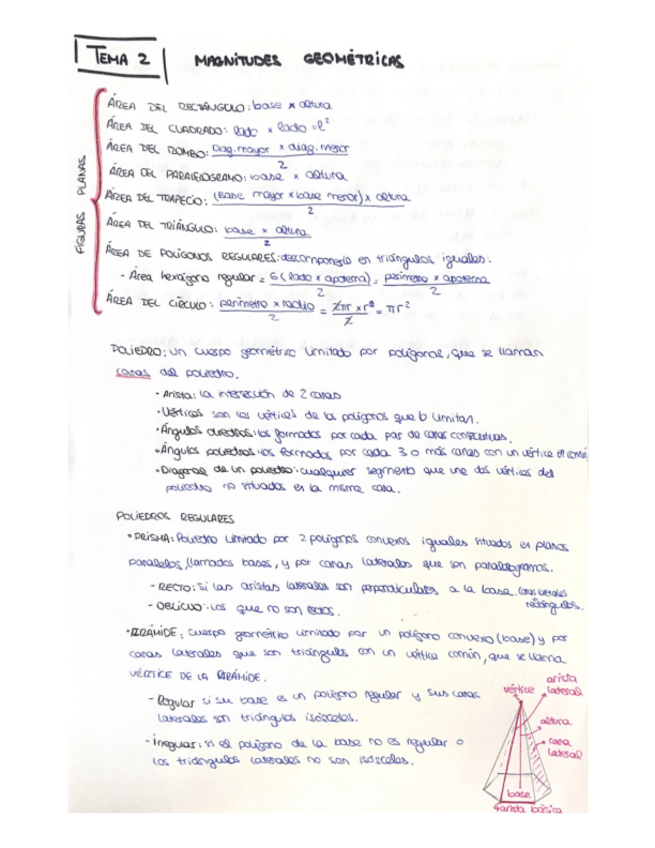 TEMA 2 MAGNITUDES GEOMÉTRICAS
FIGURAS PLANAS
ÁREA DEL RECTÁNGULO: base x altura
ÁREA DEL CUADRADO: lado x lado = l²
ÁREA DEL ROMBO: Diag. mayor x diag. menor / 2
ÁREA DEL PARALELOGRAMO: base x altura
ÁREA DEL TRAPECIO: (Base mayor x base menor) x altura / 2
ÁREA DEL TRIÁNGULO: base x altura / 2
ÁREA DE POLÍGONOS REGULARES: descomponerlo en triángulos iguales:
- Área hexágono regular = 6 (lado x apotema) / 2 = perímetro x apotema / 2
ÁREA DEL CÍRCULO: perímetro x radio / 2 = 2πr x r / 2 = πr²
POLIEDRO: un cuerpo geométrico limitado por polígonos, que se llaman
caras del poliedro.
• Arista: la intersección de 2 caras
• Vértices son los vértices de los polígonos que lo limitan.
• Ángulos diedros: los formados por cada par de caras consecutivas.
• Ángulos poliedros: los formados por cada 3 o más caras con un vértice en común
• Diagonal de un poliedro: cualquier segmento que une dos vértices del
poliedro no situados en la misma cara.
POLIEDROS REGULARES
• PRISMA: Poliedro limitado por 2 polígonos convexos iguales situados en planos
paralelos, llamados bases, y por caras laterales que son paralelogramos.
- RECTO: Si las aristas laterales son perpendiculares a la base. Caras laterales
rectángulos.
- OBLICUO: los que no son rectos.
• PIRÁMIDE: cuerpo geométrico limitado por un polígono convexo (base) y por
caras laterales que son triángulos con un vértice común, que se llama
VÉRTICE DE LA PIRÁMIDE.
- Regular si su base es un polígono regular y sus caras
laterales son triángulos isósceles.
- irregular: si el polígono de la base no es regular o
los triángulos laterales no son isósceles.
vértice
arista
lateral
altura
cara
lateral
base
arista básica